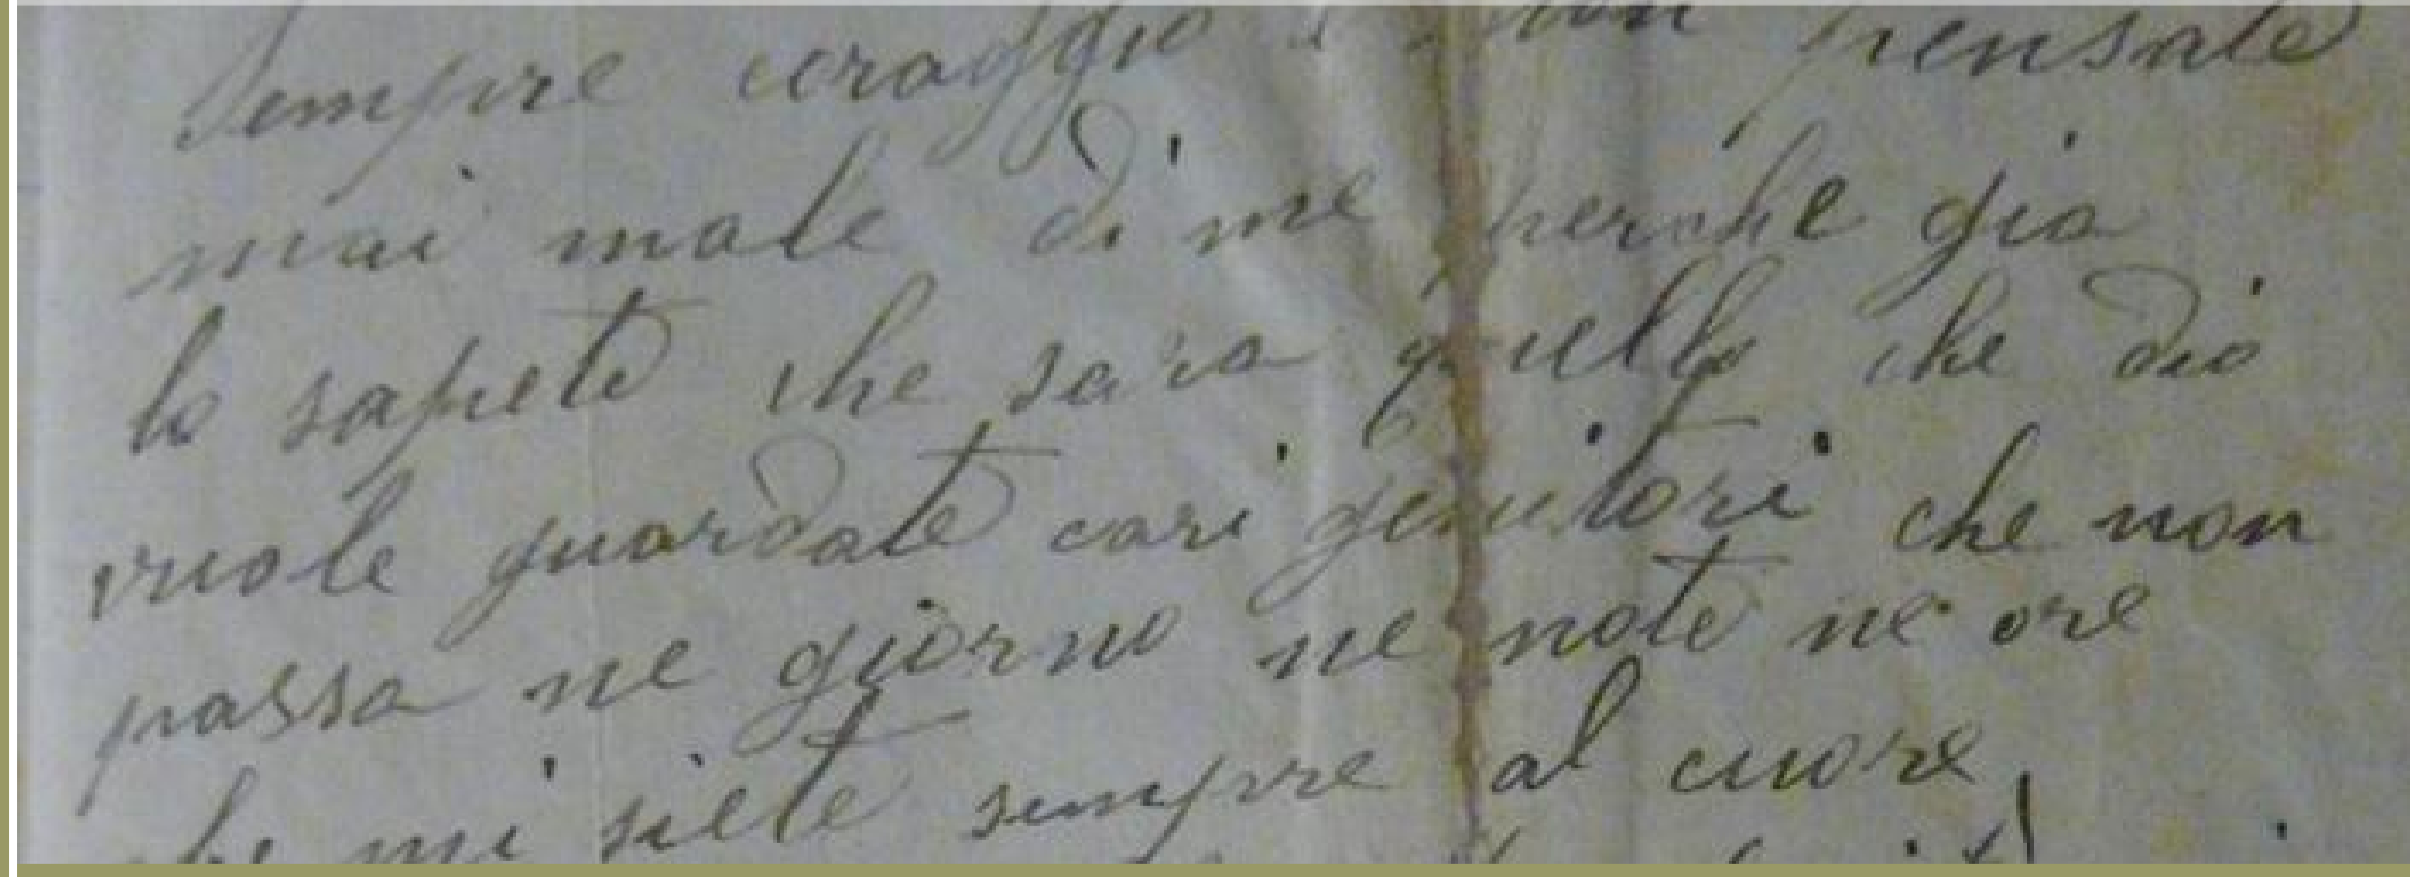 Sempre coraggio e non pensate
mai male di me perche gia
lo sapete che sara quello che dio
vuole guardate cari genitori che non
passa ne giorno ne note ne ore
che mi siete sempre al cuore